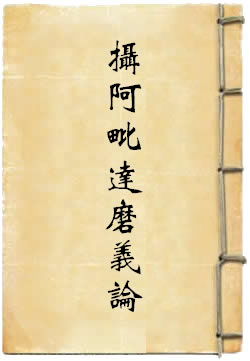 攝阿毗達磨義論